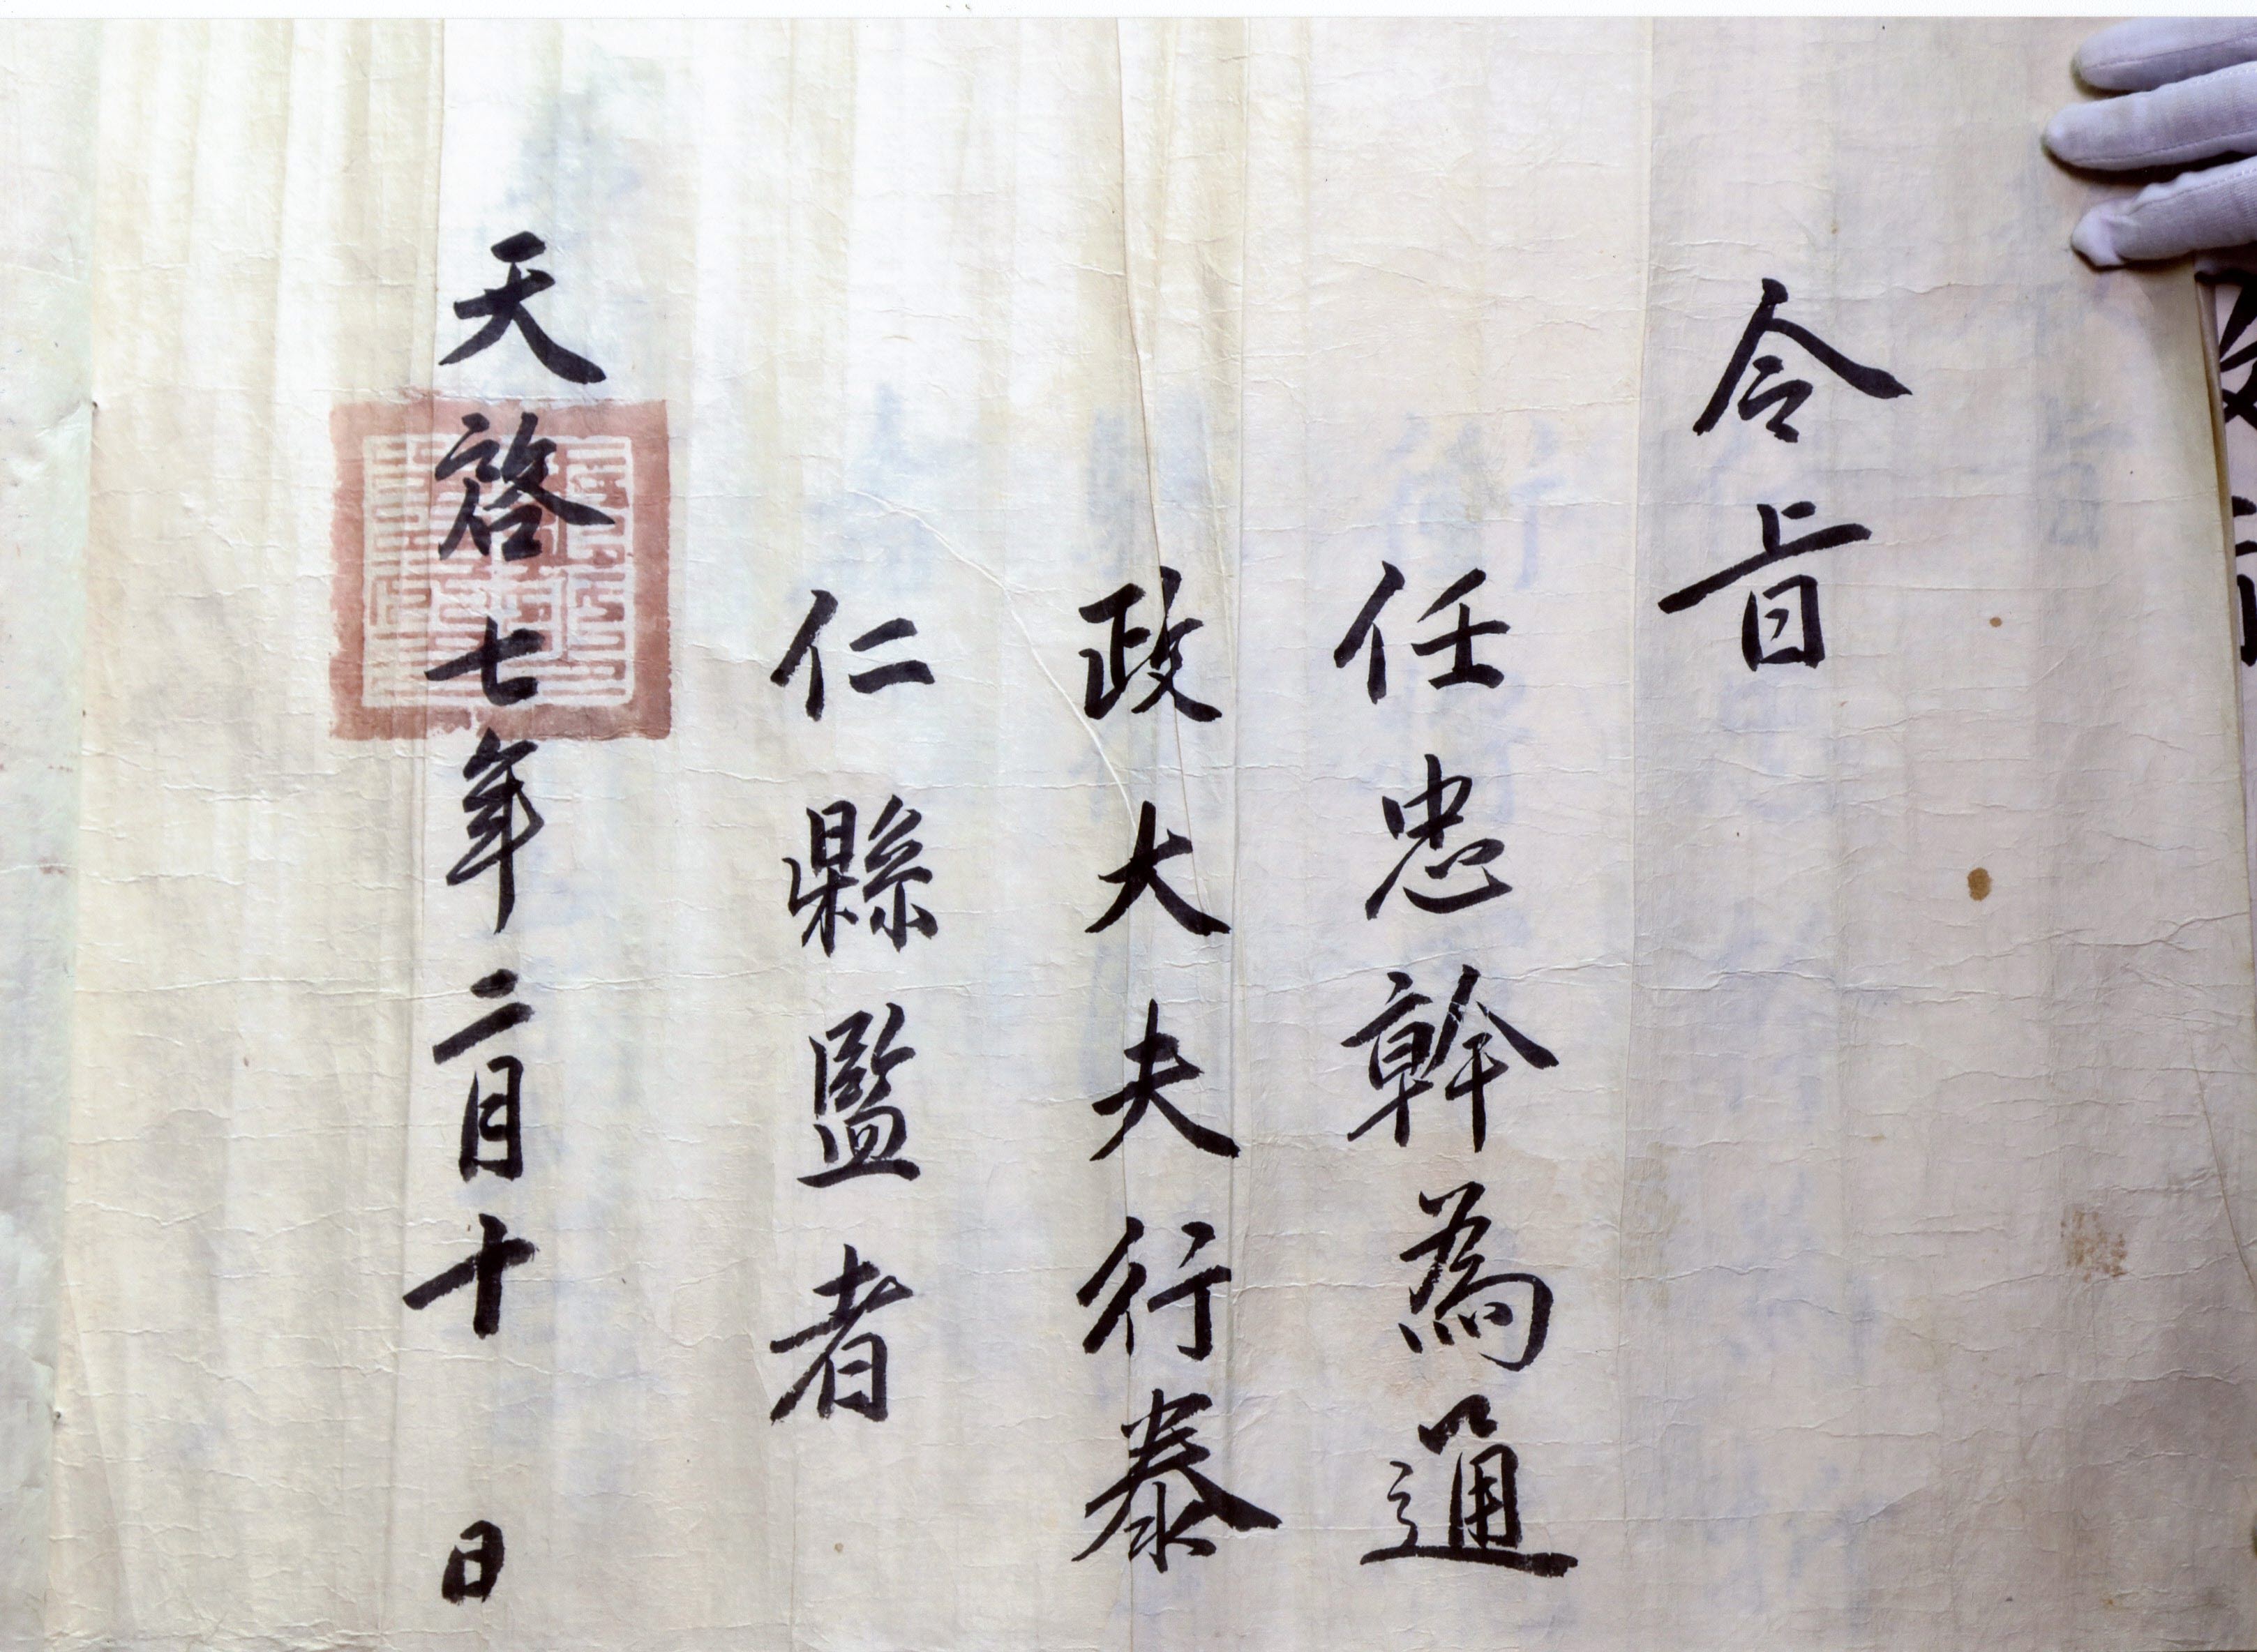 令旨
任忠幹為通
政大夫行泰
仁縣監者
天啓七年二月十 日